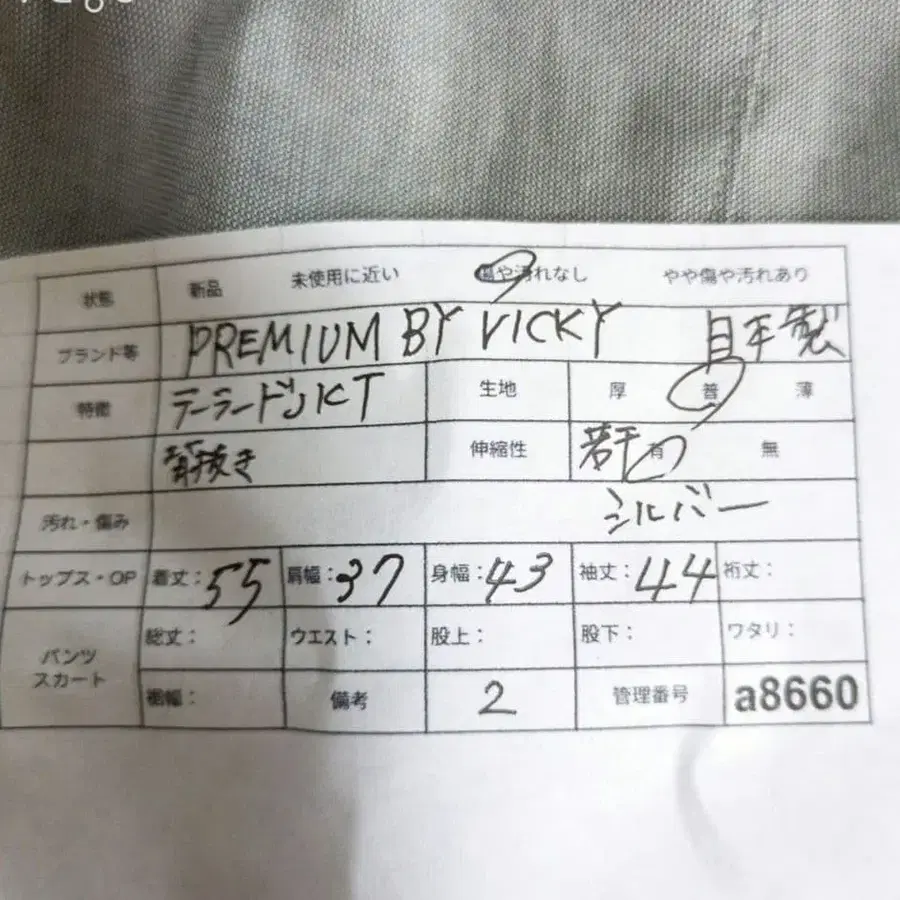 状態 新品 未使用に近い 傷や汚れなし やや傷や汚れあり
ブランド等 PREMIUM BY VICKY 日本製
特徴 テーラードJKT 生地 厚 普 薄
背抜き 伸縮性 若干 有 無
汚れ・傷み シルバー
トップス・OP 着丈：55 肩幅：37 身幅：43 袖丈：44 裄丈：
パンツ スカート 総丈： ウエスト： 股上： 股下： ワタリ：
裾幅： 備考 2 管理番号 a8660